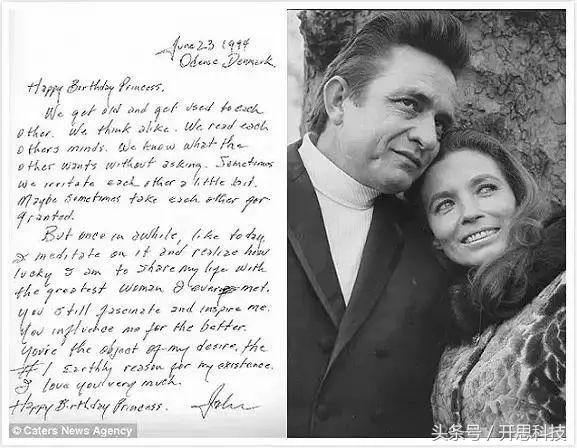 June 23 1994
Odense Denmark.
Happy Birthday Princess,
We get old and get used to each
other. We think alike. We read each
others minds. We know what the
other wants without asking. Sometimes
we irritate each other a little bit.
Maybe sometimes take each other for
granted.
But once in awhile, like today,
I meditate on it and realize how
lucky I am to share my life with
the greatest woman I ever met.
You still fascinate and inspire me.
You influence me for the better.
You're the object of my desire, the
#1 Earthly reason for my existence.
I love you very much.
Happy Birthday Princess.
John
© Caters News Agency
头条号 / 开思科技